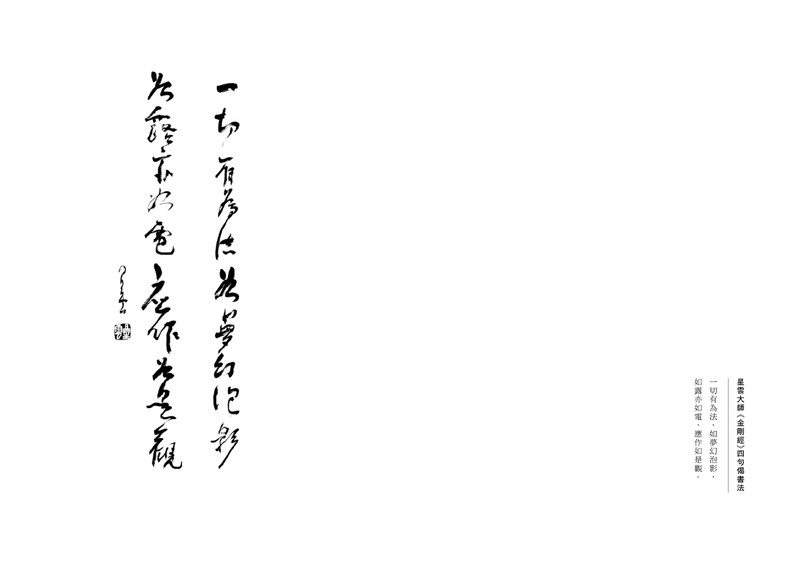 星雲大師《金剛經》四句偈書法
一切有為法，如夢幻泡影，
如露亦如電，應作如是觀。
一切有為法如夢幻泡影
如露亦如電應作如是觀
星雲